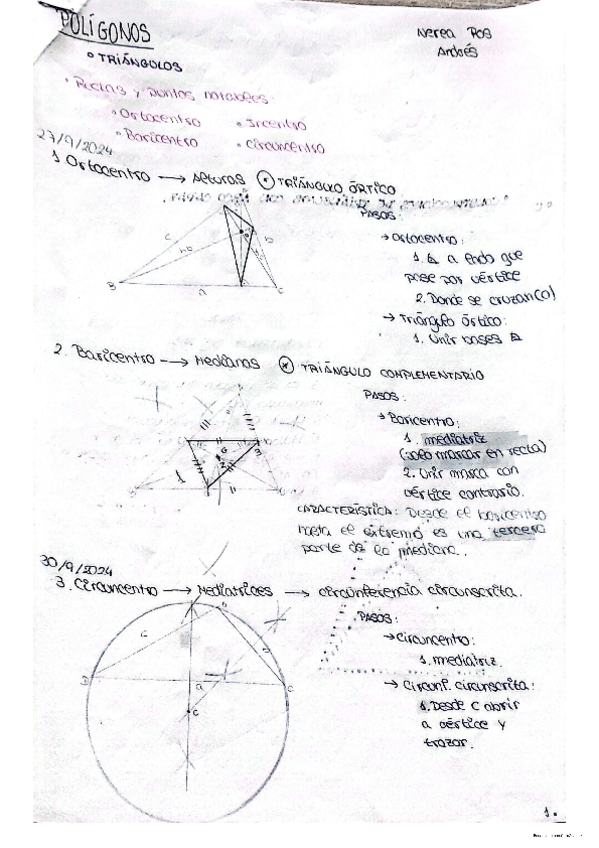 POLÍGONOS
Nerea Pos
Andrés
° TRIÁNGULOS
° Rectas y puntos notables:
° Ortocentro ° Incentro
° Baricentro ° Circuncentro
27/9/2024
1. Ortocentro → Alturas * TRIÁNGULO ÓRTICO
PASOS:
→ Ortocentro:
1. a endo que
pase por vértice
2. Donde se cruzan (o)
→ Triángulo órtico:
1. Unir bases
2. Baricentro → Medianas * TRIÁNGULO COMPLEMENTARIO
PASOS:
→ Baricentro:
1. mediatriz
(solo marcar en recta)
2. Unir marca con
vértice contrario.
CARACTERÍSTICA: Desde el baricentro
hasta el extremo es una tercera
parte de la mediana.
30/9/2024
3. Circuncentro → Mediatrices → circunferencia circunscrita.
PASOS:
→ Circuncentro:
1. mediatriz.
→ Circunf. circunscrita:
1. Desde C abrir
a vértice y
trazar.
1.